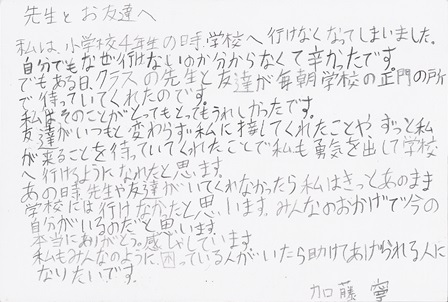 先生とお友達へ
私は、小学校4年生の時、学校へ行けなくなってしまいました。
自分でもなぜ行けないのか分からなくて辛かったです。
でもある日、クラスの先生と友達が毎朝学校の正門の所
で待っていてくれたのです。
私はそのことがとってもとってもうれしかったです。
友達がいつもと変わらず私に接してくれたことや、ずっと私
が来ることを待っていてくれたことで私も勇気を出して学校
へ行けるようになれたと思います。
あの時、先生や友達がいてくれなかったら私はきっとあのまま
学校には行けなかったと思います。みんなのおかげで今の
自分がいるのだと思います。
本当にありがとう。感しゃしています。
私もみんなのように、困っている人がいたら助けてあげられる人に
なりたいです。
加藤 寧